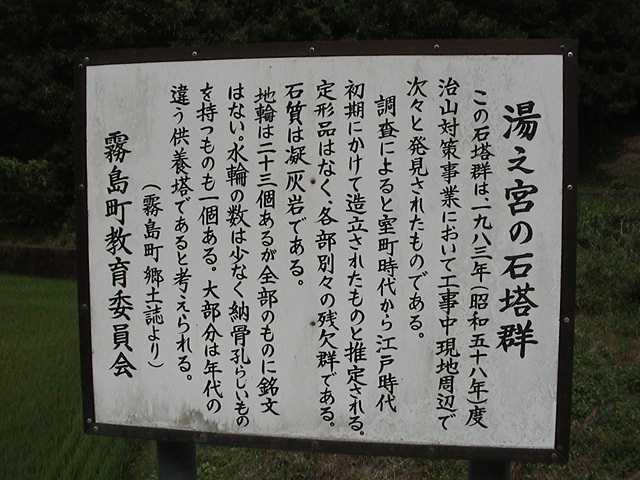 湯之宮の石塔群
この石塔群は、一九八三年(昭和五十八年)度
治山対策事業において工事中現地周辺で
次々と発見されたものである。
調査によると室町時代から江戸時代
初期にかけて造立されたものと推定される。
定形品はなく、各部別々の残欠群である。
石質は凝灰岩である。
地輪は二十三個あるが全部のものに銘文
はない。水輪の数は少なく納骨孔らしいもの
を持つものも一個ある。大部分は年代の
違う供養塔であると考えられる。
(霧島町郷土誌より)
霧島町教育委員会